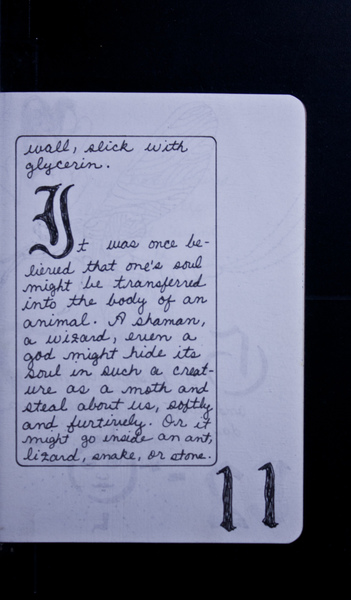 wall, slick with
glycerin.
It was once be-
lieved that one's soul
might be transferred
into the body of an
animal. A shaman,
a wizard, even a
god might hide its
soul in such a creat-
ure as a moth and
steal about us, softly
and furtively. Or it
might go inside an ant,
lizard, snake, or stone.
11